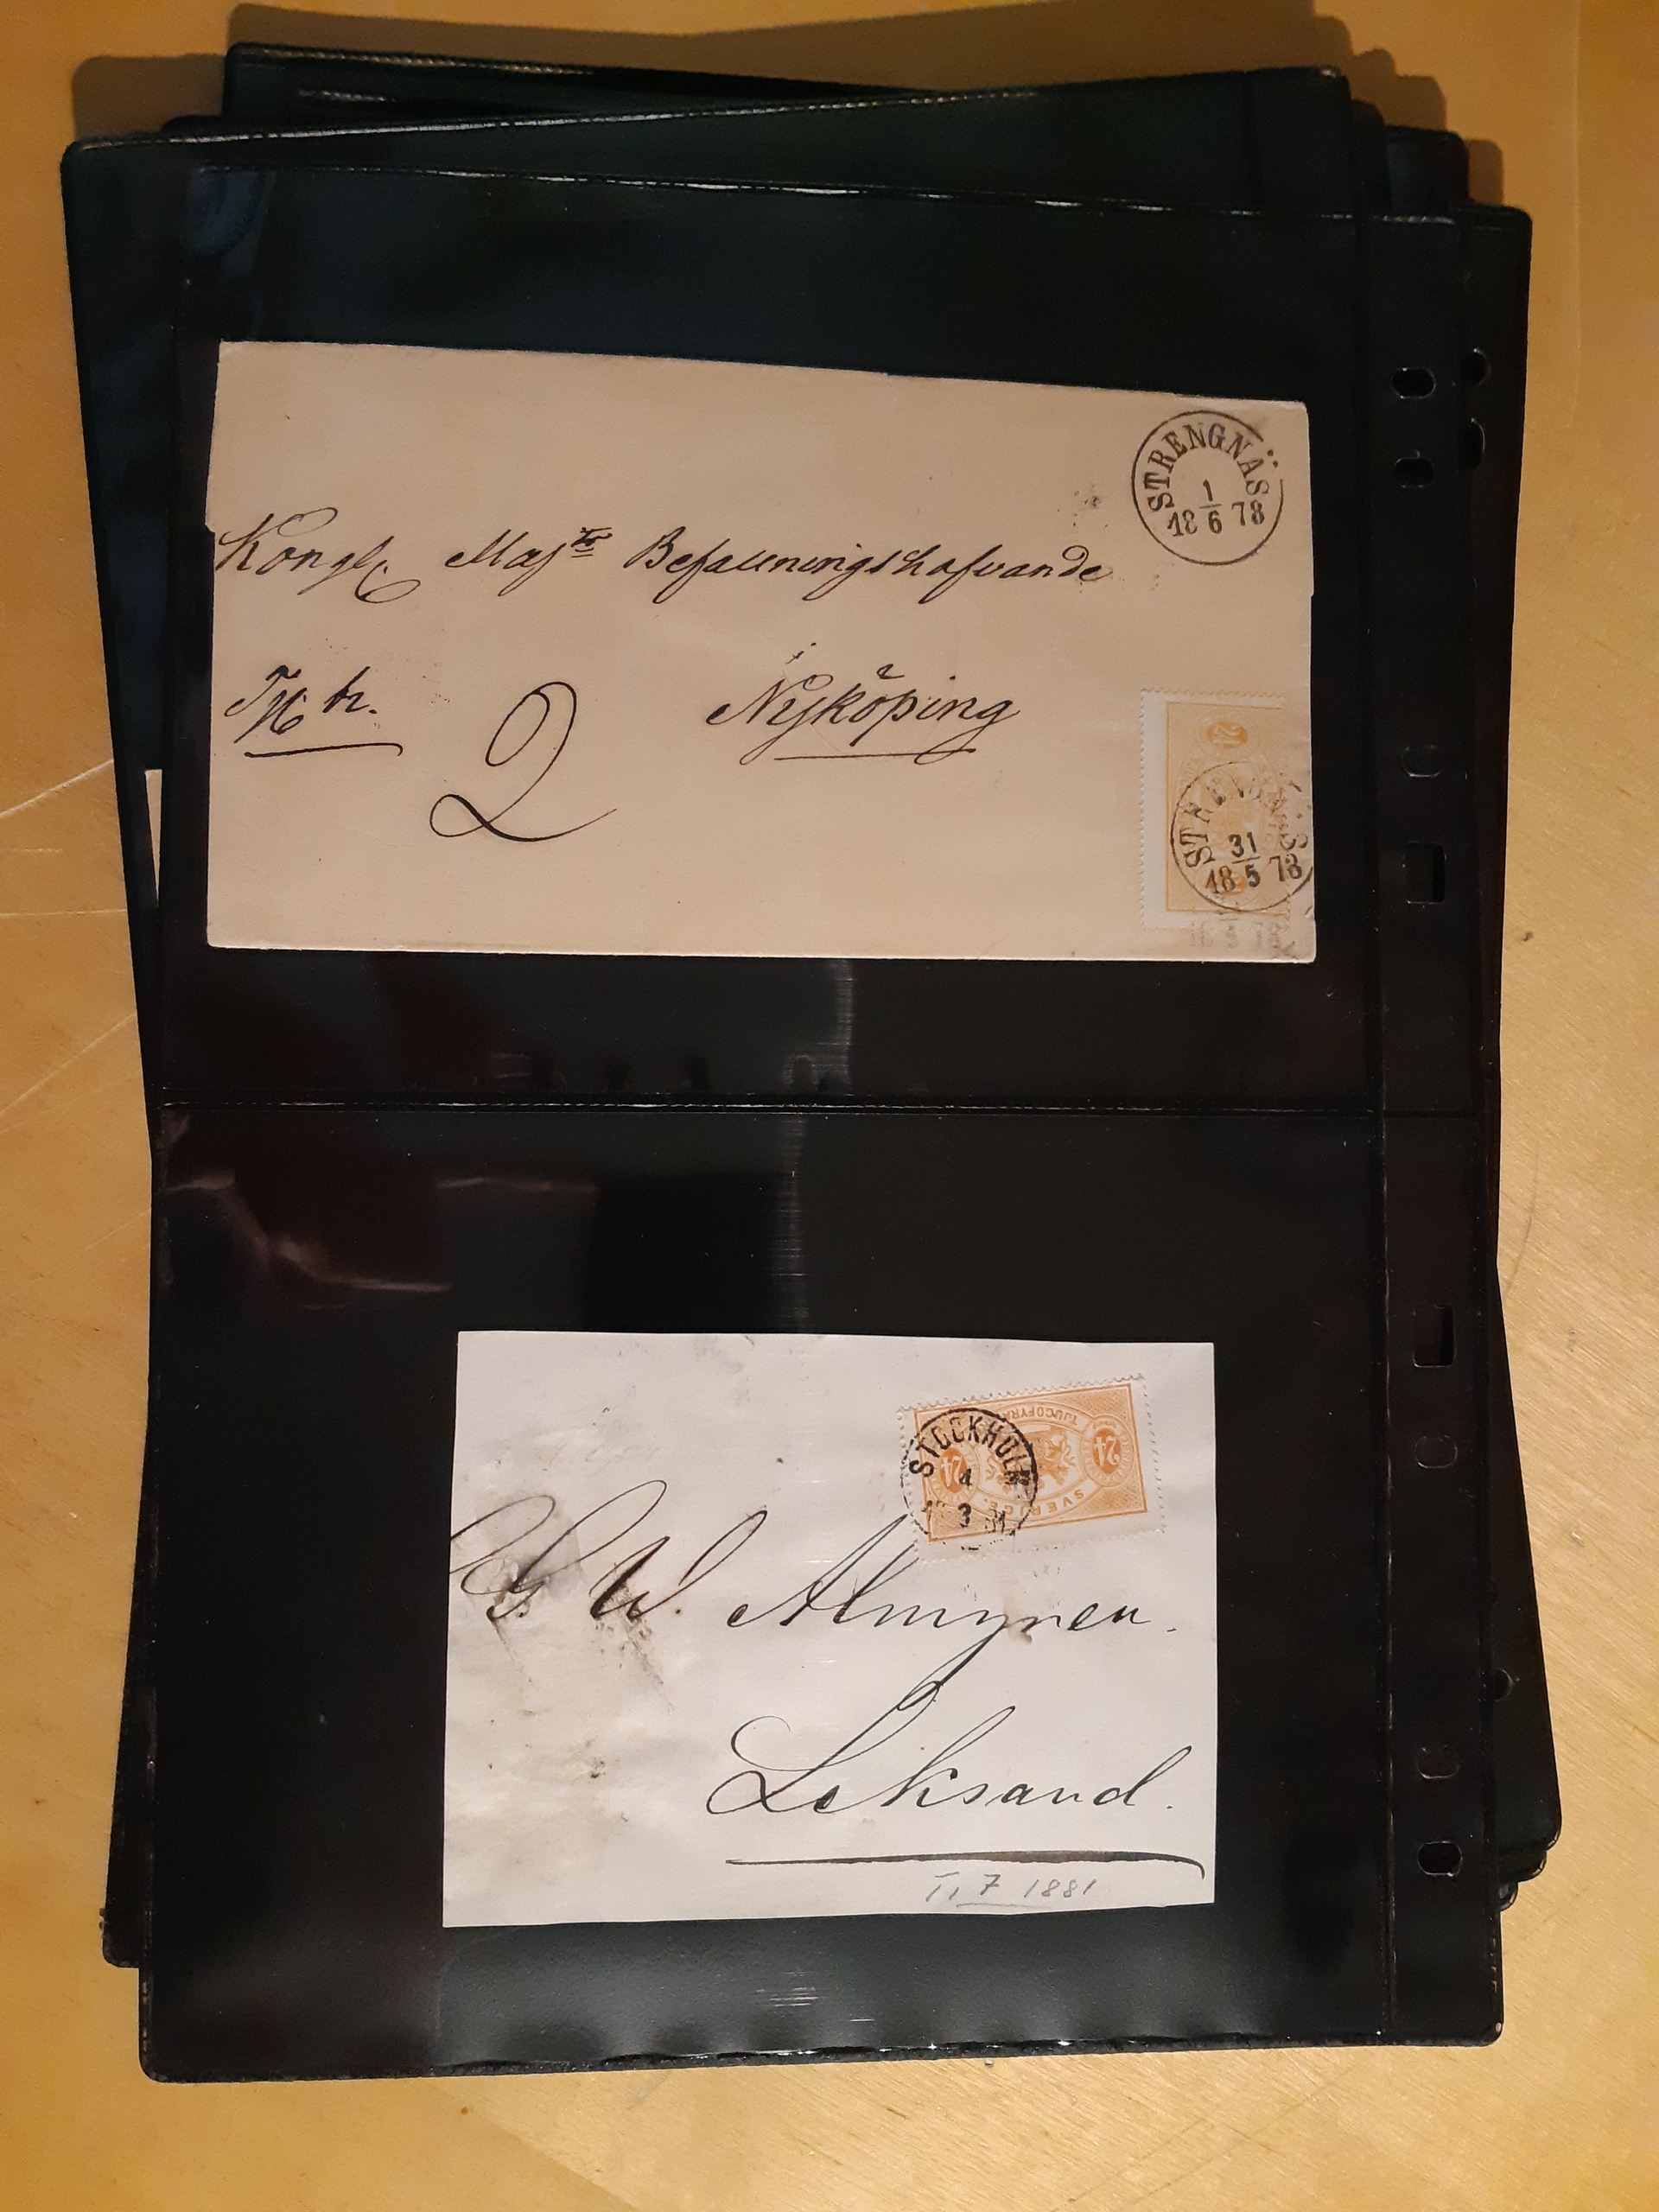 STRENGNÄS
1
18 6 78
Kongl. Maj:ts Befallningshafvande
Nyköping
2
24
STRENGNÄS
31
18 5 78
18 5 78
TJUGOFYRA
24
24
SVERIGE.
STOCKHOLM
4
3
G. W. Almgren.
Leksand.
7 1881